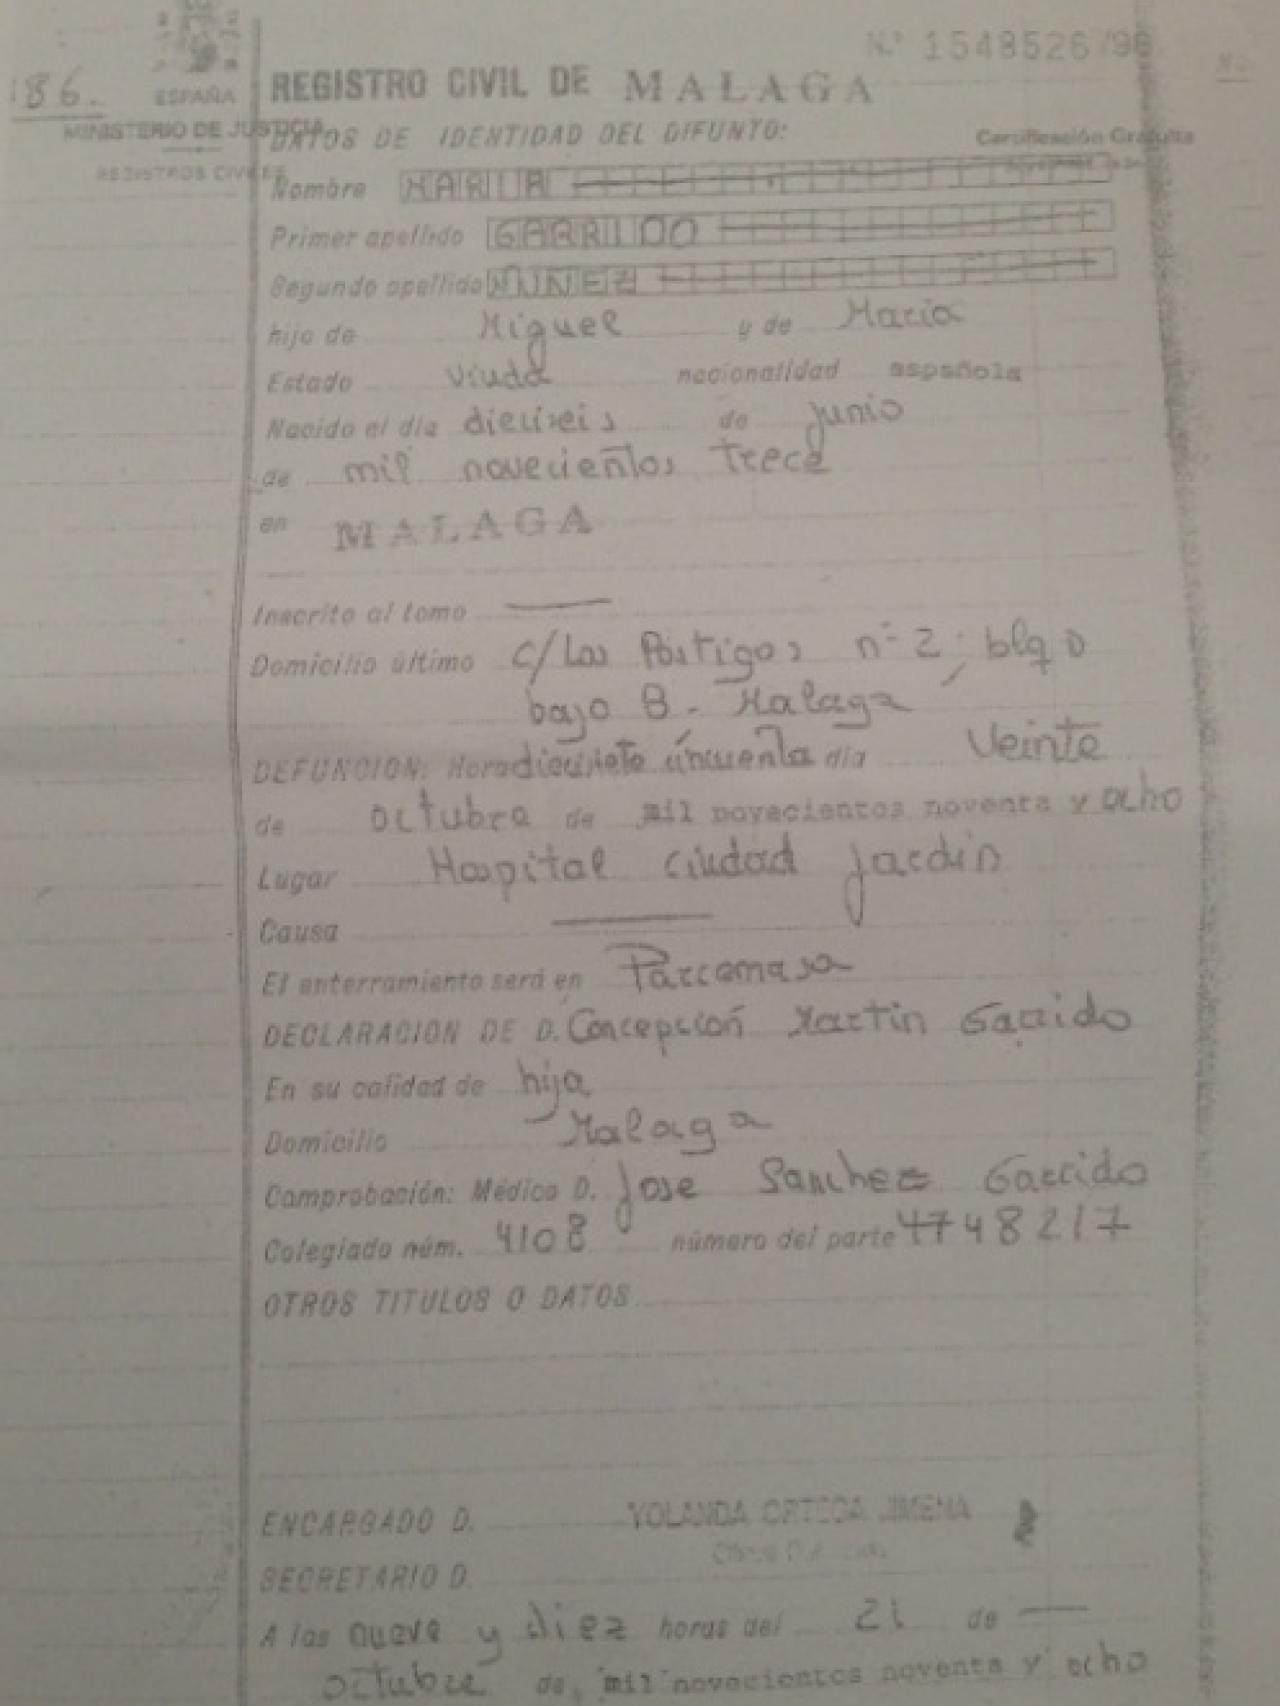 N.º 1548526/98
186.
ESPAÑA
REGISTRO CIVIL DE MALAGA
MINISTERIO DE JUSTICIA
DATOS DE IDENTIDAD DEL DIFUNTO:
Certificación Gratuita
REGISTROS CIVILES
Nombre MARIA
Primer apellido GARRIDO
Segundo apellido NUÑEZ
hijo de Miguel y de Maria
Estado viuda nacionalidad española
Nacido el día dieciseis de junio
de mil novecientos trece
en MALAGA
Inscrito al tomo
Domicilio último c/ Los Postigos nº 2, blq D
bajo B - Malaga
DEFUNCION: Hora diecisiete cincuenta día Veinte
de octubre de mil novecientos noventa y ocho
Lugar Hospital Ciudad Jardin
Causa
El enterramiento será en Parcemasa
DECLARACION DE D. Concepción Martin Garrido
En su calidad de hija
Domicilio Malaga
Comprobación: Médico D. Jose Sanchez Garrido
Colegiado núm. 4108 número del parte 4748217
OTROS TITULOS O DATOS
ENCARGADO D. YOLANDA ORTEGA JIMENA
SECRETARIO D.
A las nueve y diez horas del 21 de
octubre de mil novecientos noventa y ocho